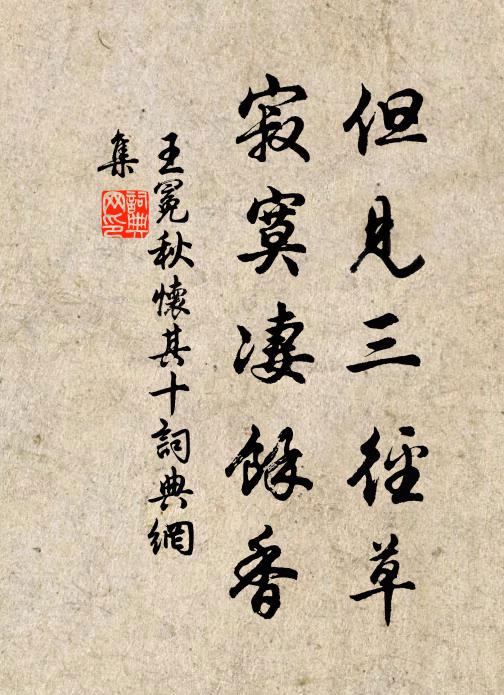 但見三徑草
寂寞淒餘香
王冕秋懷其十詞典網
集
詞典
网印